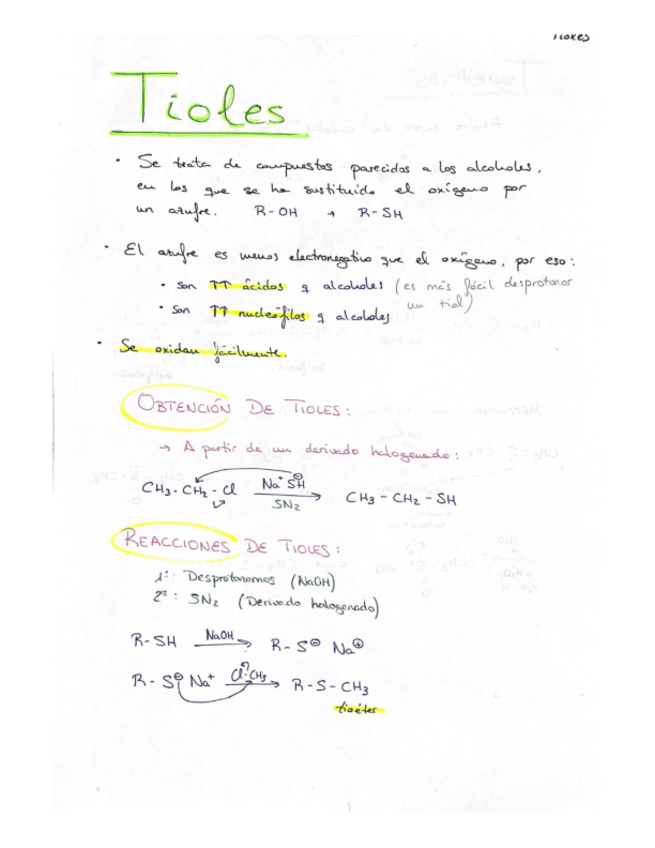 Tioles
Tioles
· Se trata de compuestos parecidos a los alcoholes,
en los que se ha sustituido el oxígeno por
un azufre. R-OH → R-SH
· El azufre es menos electronegativo que el oxígeno, por eso:
· son ↑↑ ácidos q alcoholes (es más fácil desprotonar
un tiol)
· son ↑↑ nucleófilos q alcoholes
· Se oxidan fácilmente.
OBTENCIÓN DE TIOLES:
→ A partir de un derivado halogenado:
CH₃-CH₂-Cl Na⁺ SH⊖ SN₂ → CH₃-CH₂-SH
REACCIONES DE TIOLES:
1º: Desprotonamos (NaOH)
2º: SN₂ (Derivado halogenado)
R-SH NaOH → R-S⊖ Na⊕
R-S⊖ Na⁺ Cl-CH₃ → R-S-CH₃
tioéter